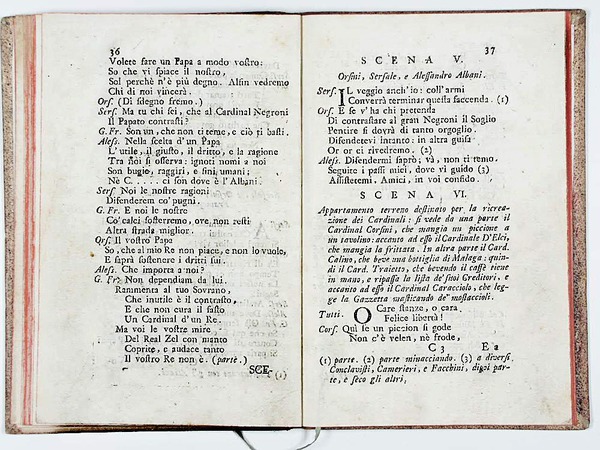 36
Volete fare un Papa a modo vostro:
So che vi spiace il nostro,
Sol perchè n'è più degno. Alfin vedremo
Chi di noi vincerà.
Ors. (Di sdegno fremo.)
Sers. Ma tu chi sei, che al Cardinal Negroni
Il Papato contrasti?
G. Fr. Son un, che non ti teme, e ciò ti basti.
Aless. Nella scelta d'un Papa
L'utile, il giusto, il dritto, e la ragione
Tra noi si osserva: ignoti nomi a noi
Son bugìe, raggiri, e fini umani;
Nè C..... ci son dove è l'Albani.
Sers. Noi le nostre ragioni
Difenderem co' pugni.
G. Fr. E noi le nostre
Co' calci sosterremo, ove non resti
Altra strada miglior.
Ors. Il vostro Papa
So, che al mio Re non piace, e non lo vuole,
E saprà sostenere i dritti sui.
Aless. Che importa a noi?
G. Fr. Non dependiam da lui.
Rammenta al tuo Sovrano,
Che inutile è il contrasto,
E che non cura il fasto
Un Cardinal d'un Re.
Ma voi le vostre mire,
Del Real Zel con manto
Coprite, e audace tanto
Il vostro Re non è. (parte.)
SCE-
37
SCENA V.
Orsini, Sersale, e Alessandro Albani.
Sers. IL veggio anch'io: coll'armi
Converrà terminar questa faccenda. (1)
Ors. E se v'ha chi pretenda
Di contrastare al gran Negroni il Soglio
Pentire si dovrà di tanto orgoglio.
Difendetevi intanto: in altra guisa
Or or ci rivedremo. (2)
Aless. Difendermi saprò; và, non ti temo.
Seguite i passi miei, dove vi guido (3)
Assistetemi. Amici, in voi confido.
SCENA VI.
Appartamento terreno destinato per la vicrea-
zione dei Cardinali: si vede da una parte il
Cardinal Corsini, che mangia un piccione a
un tavolino: accanto ad esso il Cardinale D'Elci,
che mangia la frittata. In altra parte il Card.
Calino, che beve una bottiglia di Malaga: quin-
di il Card. Traietto, che bevendo il caffè tiene
in mano, e ripassa la lista de' suoi Creditori, e
accanto ad esso il Cardinale Caracciolo, che leg-
ge la Gazzetta masticando de' mostaccioli.
Tutti. O Care stanze, o cara
Felice libertà!
Cors. Quì se un piccion si gode
Non c'è velen, nè frode,
C 3 E a
(1) parte. (2) parte minacciando. (3) a diversi
Conclavisti, Camerieri, e Facchini, dipoi par-
te, e seco gli altri,